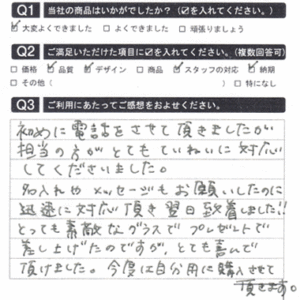 Q1 当社の商品はいかがでしたか?(☑を入れてください。)
☑大変よくできました □よくできました □頑張りましょう
Q2 ご満足いただけた項目に☑を入れてください。(複数回答可)
□価格 ☑品質 ☑デザイン □商品 ☑スタッフの対応 ☑納期
□その他( ) □特になし
Q3 ご利用にあたってご感想をおよせください。
初めに電話をさせて頂きましたが
担当の方がとてもていねいに対応
してくださいました。
名入れや メッセージもお願いしたのに
迅速に対応頂き翌日到着しました!!
とっても素敵なグラスで プレゼントで
差し上げたのですが、とても喜んで
頂けました。今度は自分用に購入させて
頂きます。